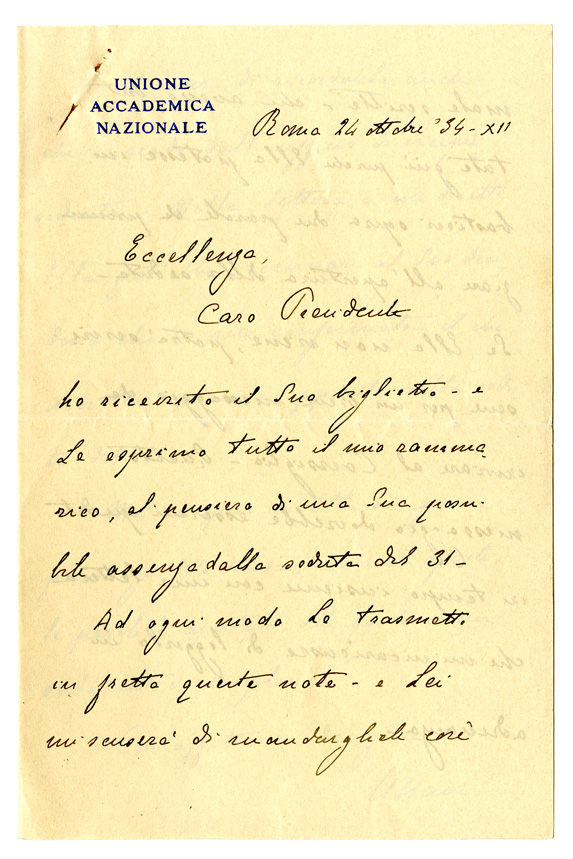 UNIONE
ACCADEMICA
NAZIONALE
Roma 24 ottobre '34-XII
Eccellenza,
Caro Presidente
ho ricevuto il Suo biglietto - e
Le esprimo tutto il mio ramma
rico, al pensiero di una Sua possi-
bile assenza dalla seduta del 31-
Ad ogni modo Le trasmetto
in fretta queste note - e Lei
mi scuserà di mandargliele così